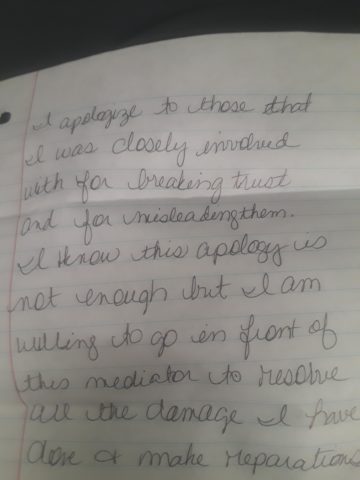 I apologize to those that
I was closely involved
with for breaking trust
and for misleading them.
I know this apology is
not enough but I am
willing to go in front of
this mediator to resolve
all the damage I have
done & make reparations